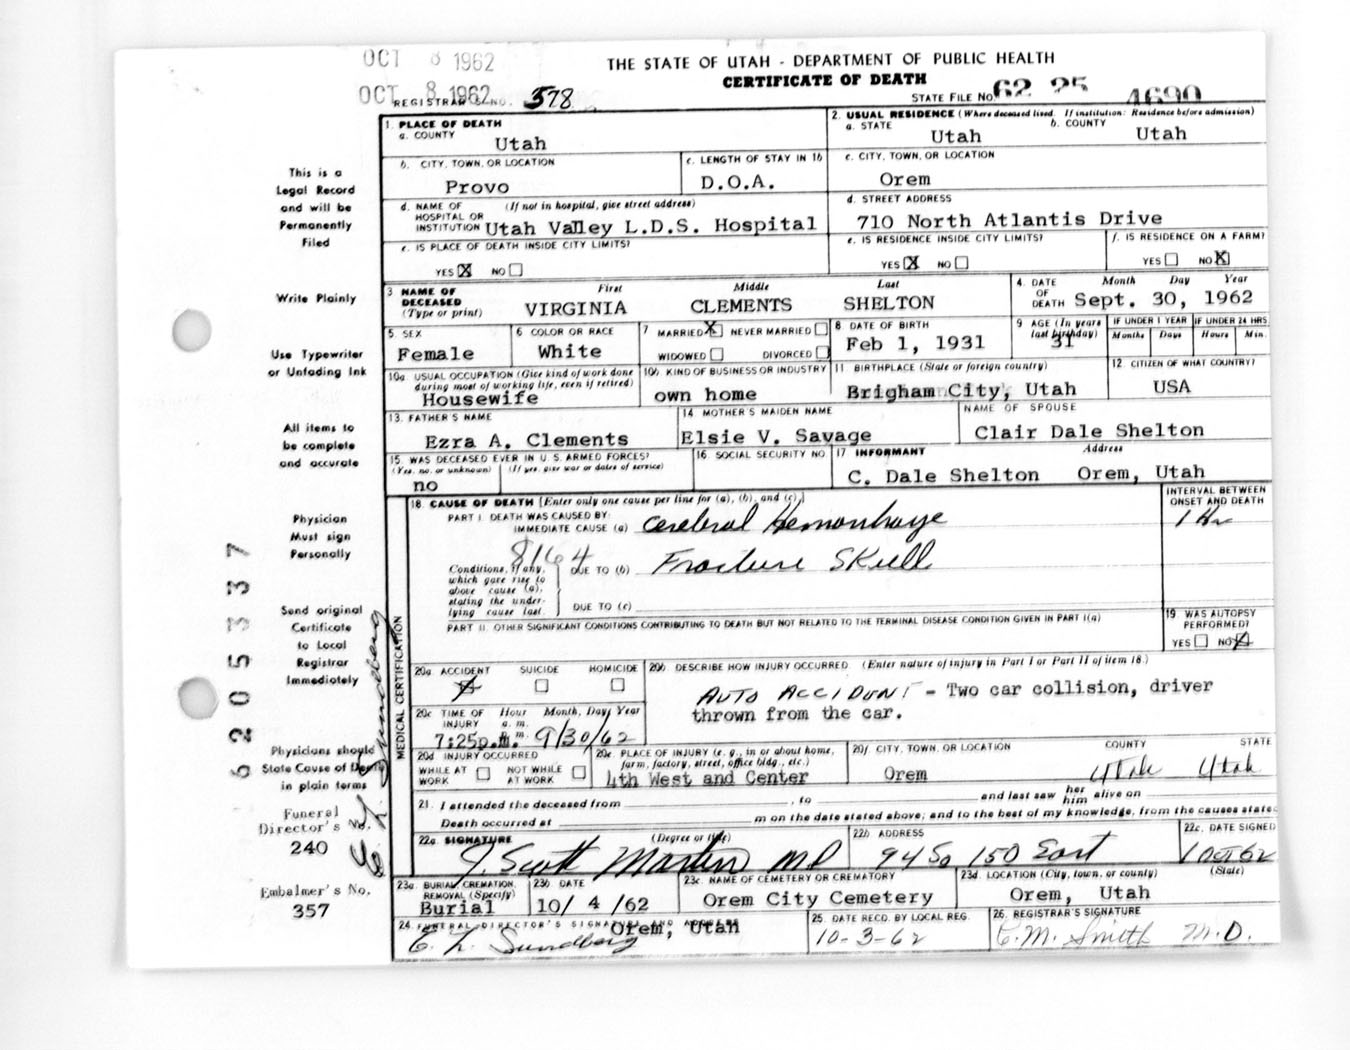 OCT 8 1962
THE STATE OF UTAH - DEPARTMENT OF PUBLIC HEALTH
CERTIFICATE OF DEATH
OCT 8 1962
REGISTRAR'S NO. 378
STATE FILE NO. 62 25 4690
1. PLACE OF DEATH
a. COUNTY
Utah
2. USUAL RESIDENCE (Where deceased lived. If institution: Residence before admission)
a. STATE
Utah
b. COUNTY
Utah
b. CITY, TOWN, OR LOCATION
Provo
c. LENGTH OF STAY IN 1b
D.O.A.
c. CITY, TOWN, OR LOCATION
Orem
d. NAME OF HOSPITAL OR INSTITUTION (If not in hospital, give street address)
Utah Valley L.D.S. Hospital
d. STREET ADDRESS
710 North Atlantis Drive
e. IS PLACE OF DEATH INSIDE CITY LIMITS?
YES X NO
e. IS RESIDENCE INSIDE CITY LIMITS?
YES X NO
f. IS RESIDENCE ON A FARM?
YES NO X
3 NAME OF DECEASED (Type or print)
First Middle Last
VIRGINIA CLEMENTS SHELTON
4. DATE OF DEATH Month Day Year
Sept. 30, 1962
5. SEX
Female
6 COLOR OR RACE
White
7 MARRIED X NEVER MARRIED
WIDOWED DIVORCED
8 DATE OF BIRTH
Feb 1, 1931
9 AGE (In years last birthday)
31
IF UNDER 1 YEAR
Months Days
IF UNDER 24 HRS.
Hours Min.
10a. USUAL OCCUPATION (Give kind of work done during most of working life, even if retired)
Housewife
10b. KIND OF BUSINESS OR INDUSTRY
own home
11 BIRTHPLACE (State or foreign country)
Brigham City, Utah
12 CITIZEN OF WHAT COUNTRY?
USA
13. FATHER'S NAME
Ezra A. Clements
14 MOTHER'S MAIDEN NAME
Elsie V. Savage
NAME OF SPOUSE
Clair Dale Shelton
15 WAS DECEASED EVER IN U. S. ARMED FORCES?
(Yes, no, or unknown) (If yes, give war or dates of service)
no
16. SOCIAL SECURITY NO.
17 INFORMANT Address
C. Dale Shelton Orem, Utah
18. CAUSE OF DEATH [Enter only one cause per line for (a), (b), and (c).]
INTERVAL BETWEEN ONSET AND DEATH
PART I. DEATH WAS CAUSED BY:
IMMEDIATE CAUSE (a) Cerebral Hemorrhage
1 Hr
8164
Conditions, if any, which gave rise to above cause (a), stating the underlying cause last.
DUE TO (b) Fracture Skull
DUE TO (c)
PART II. OTHER SIGNIFICANT CONDITIONS CONTRIBUTING TO DEATH BUT NOT RELATED TO THE TERMINAL DISEASE CONDITION GIVEN IN PART I(a)
19 WAS AUTOPSY PERFORMED?
YES NO X
MEDICAL CERTIFICATION
20a ACCIDENT SUICIDE HOMICIDE
X
20b DESCRIBE HOW INJURY OCCURRED. (Enter nature of injury in Part I or Part II of item 18.)
AUTO ACCIDENT - Two car collision, driver
thrown from the car.
20c TIME OF INJURY Hour Month, Day, Year
a. m.
p. m.
7:25p.m. 9/30/62
20d INJURY OCCURRED
WHILE AT WORK NOT WHILE AT WORK
20e. PLACE OF INJURY (e. g., in or about home, farm, factory, street, office bldg., etc.)
4th West and Center
20f CITY, TOWN, OR LOCATION COUNTY STATE
Orem Utah Utah
21. I attended the deceased from , to and last saw her him alive on
Death occurred at m on the date stated above; and to the best of my knowledge, from the causes stated
22a SIGNATURE (Degree or title)
J. Scott Martin MD
22b ADDRESS
94 So 150 East
22c. DATE SIGNED
1 Oct 62
23a. BURIAL, CREMATION, REMOVAL (Specify)
Burial
23b DATE
10/ 4 /62
23c NAME OF CEMETERY OR CREMATORY
Orem City Cemetery
23d. LOCATION (City, town, or county) (State)
Orem, Utah
24. FUNERAL DIRECTOR'S SIGNATURE AND ADDRESS
E. L. Sundberg Orem, Utah
25. DATE RECD. BY LOCAL REG.
10-3-62
26. REGISTRAR'S SIGNATURE
C. M. Smith M.D.
This is a
Legal Record
and will be
Permanently
Filed
Write Plainly
Use Typewriter
or Unfading Ink
All items to
be complete
and accurate
Physician
Must sign
Personally
Send original
Certificate
to Local
Registrar
Immediately
Physicians should
State Cause of Death
in plain terms
Funeral
Director's No.
240
Embalmer's No.
357
E. L. Sundberg
6205337